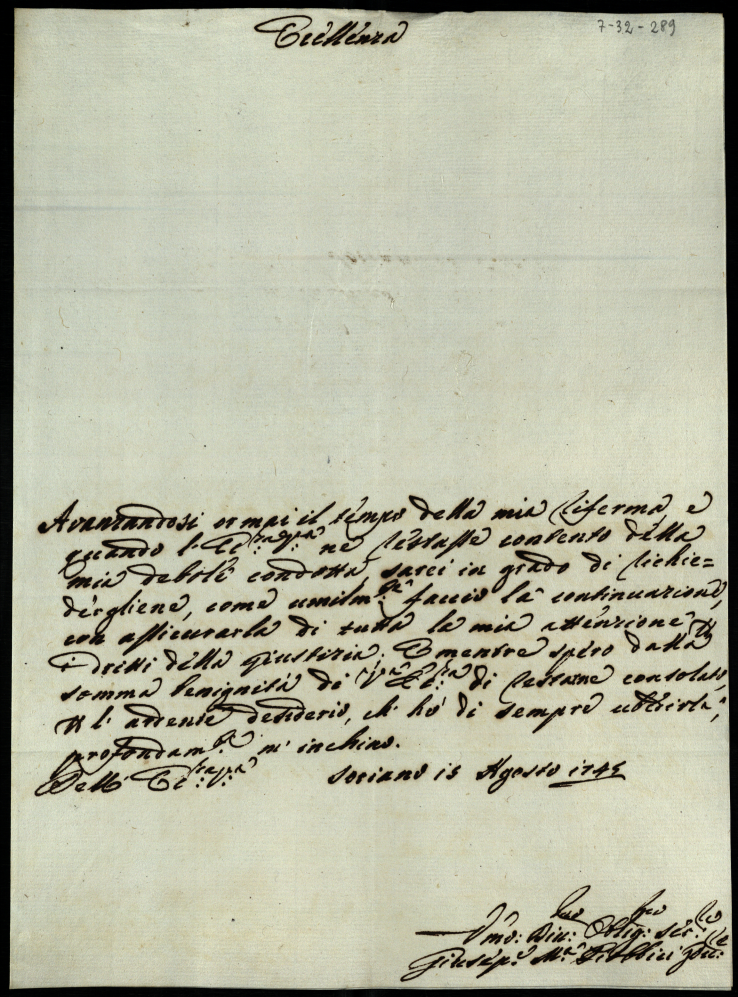 7-32-289
Eccellenza
Avanzandosi ormai il tempo della mia riferma, e
quando l'Ecc:za V:ra ne restasse contento della
mia debole condotta, sarei in grado di richie=
dergliene, come umilm:te faccio la continuazione,
con assicurarla di tutta la mia attenzione
i dritti della giustizia. E mentre spero dalla
somma benignità di V:ra Ecc:za di restarne consolato,
l'ardente desiderio, ch'hò di sempre ubbidirla,
profondam:te m'inchino.
Dell'Ecc:za V:ra Soriano 15 Agosto 1745
Umo: Div: Oblig: Ser:re
Giusep:e M:a